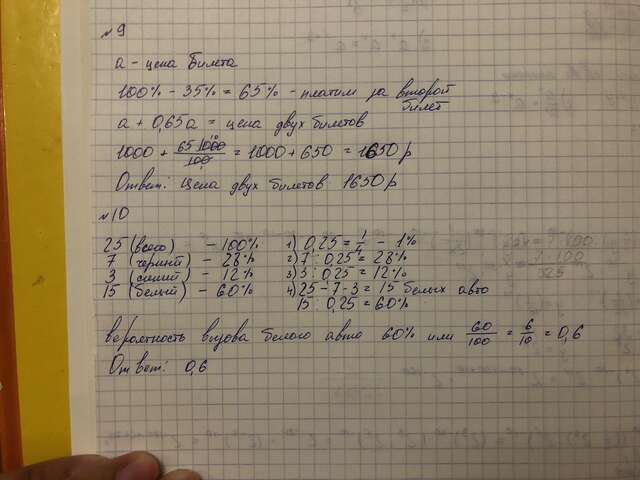 №9
а - цена билета
100% - 35% = 65% - платит за второй билет
а + 0,65а = цена двух билетов
1000 + 65·1000/100 = 1000 + 650 = 1650 р
Ответ: цена двух билетов 1650 р
№10
25 (всего) - 100%
7 (черный) - 28%
3 (синий) - 12%
15 (белый) - 60%
1) 0,25 = 1/4 - 1%
2) 7 : 0,25 = 28%
3) 3 : 0,25 = 12%
4) 25 - 7 - 3 = 15 белых авто
15 : 0,25 = 60%
вероятность вызова белого авто 60% или 60/100 = 6/10 = 0,6
Ответ: 0,6